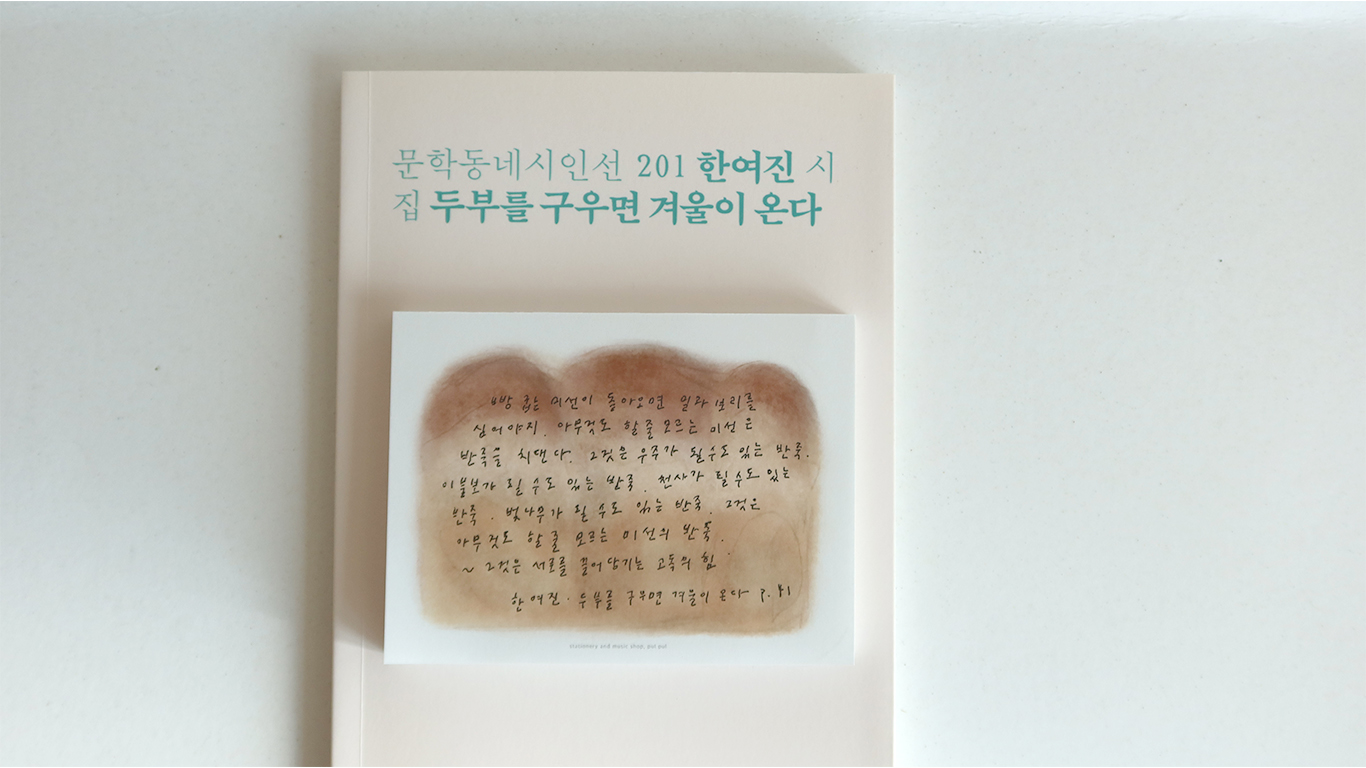 문학동네시인선 201 한여진 시
집 두부를 구우면 겨울이 온다
빵 굽는 미선이 돌아오면 밀과 보리를
심어야지. 아무것도 할 줄 모르는 미선은
반죽을 치댄다. 그것은 우주가 될 수도 있는 반죽.
이불보가 될 수도 있는 반죽. 천사가 될 수도 있는
반죽. 벚나무가 될 수도 있는 반죽. 그것은
아무것도 할 줄 모르는 미선의 반죽.
~ 그것은 서로를 끌어 당기는 고독의 힘
한여진. 두부를 구우면 겨울이 온다 P. 41
stationery and music shop, pul pul